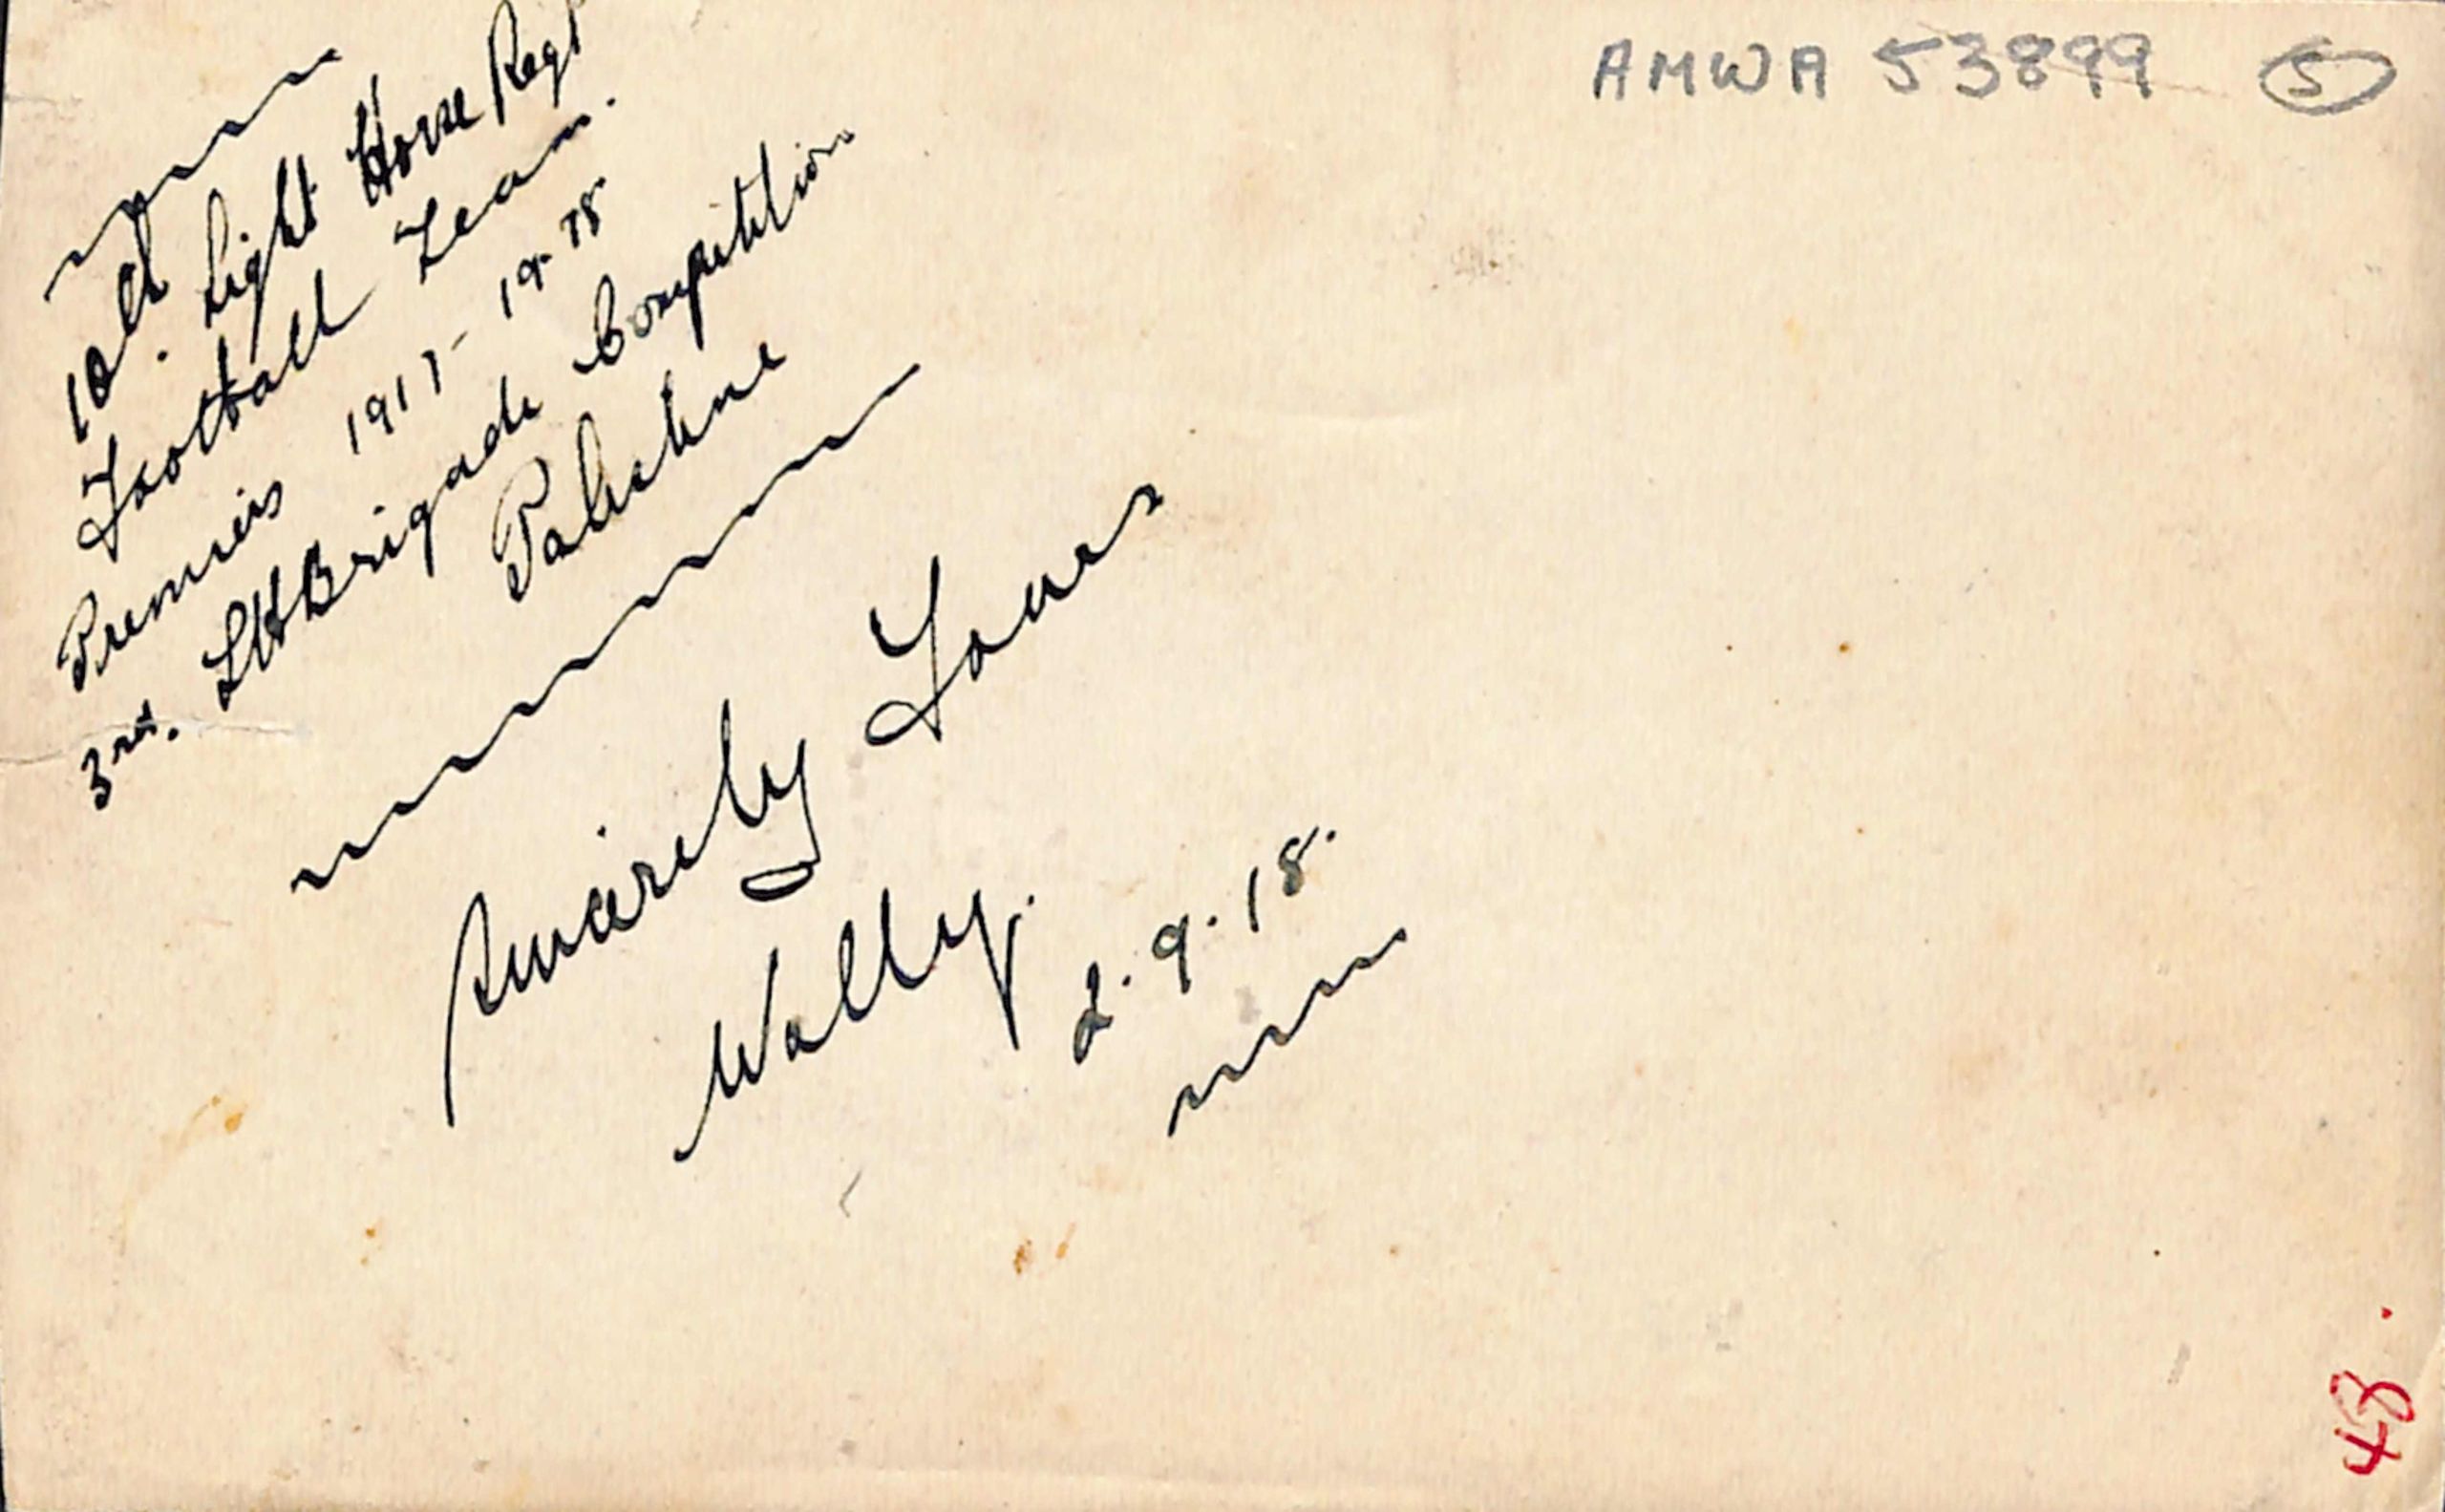 AMWA 53899 (5)
10th. Light Horse Regt
Football Team.
Premiers 1917-1918
3rd. LHBrigade Competition
Palestine
Sincerely Yours
Wally.
2.9.18.
43.